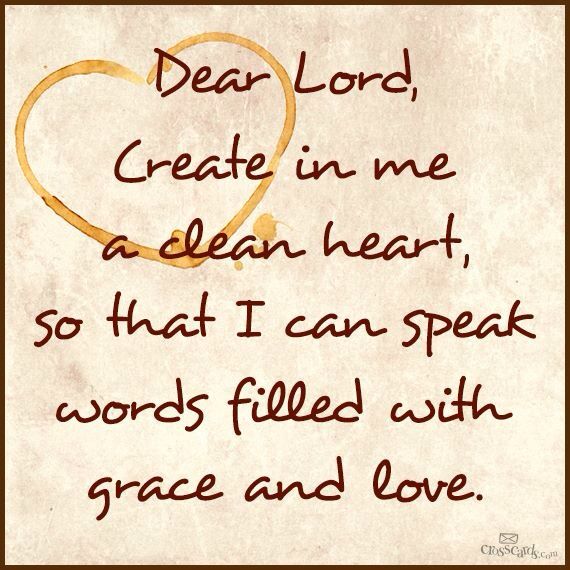 Dear Lord,
Create in me
a clean heart,
so that I can speak
words filled with
grace and love.
crosscards.com